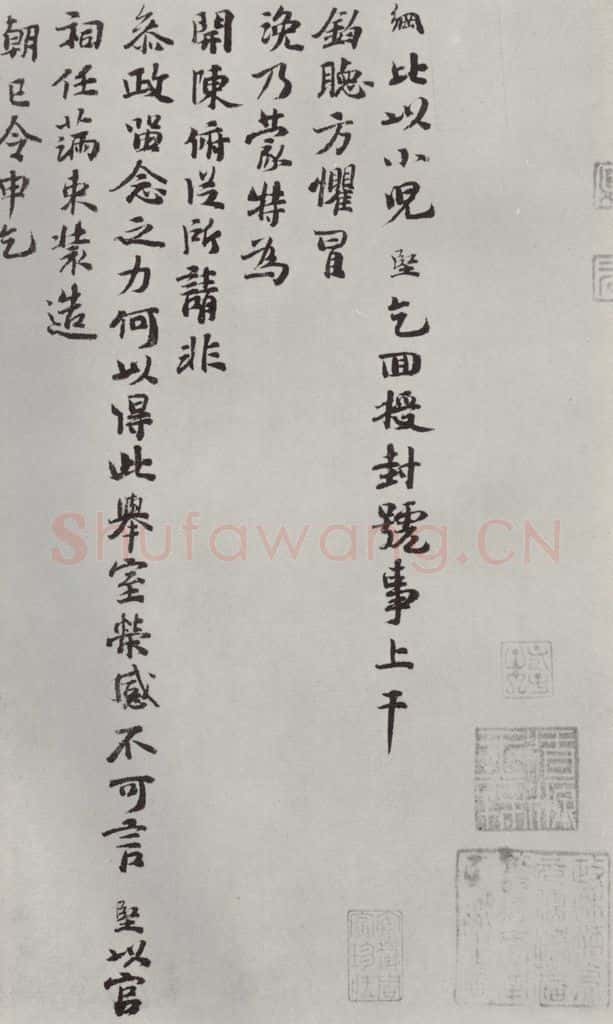 綱比以小兒堅乞回授封號事上干
鈞聽方懼冒
浼乃蒙特為
開陳俯從所請非
叅政留念之力何以得此舉室榮感不可言堅以官
祠任滿束裝造
朝已令申乞
Shufawang.CN